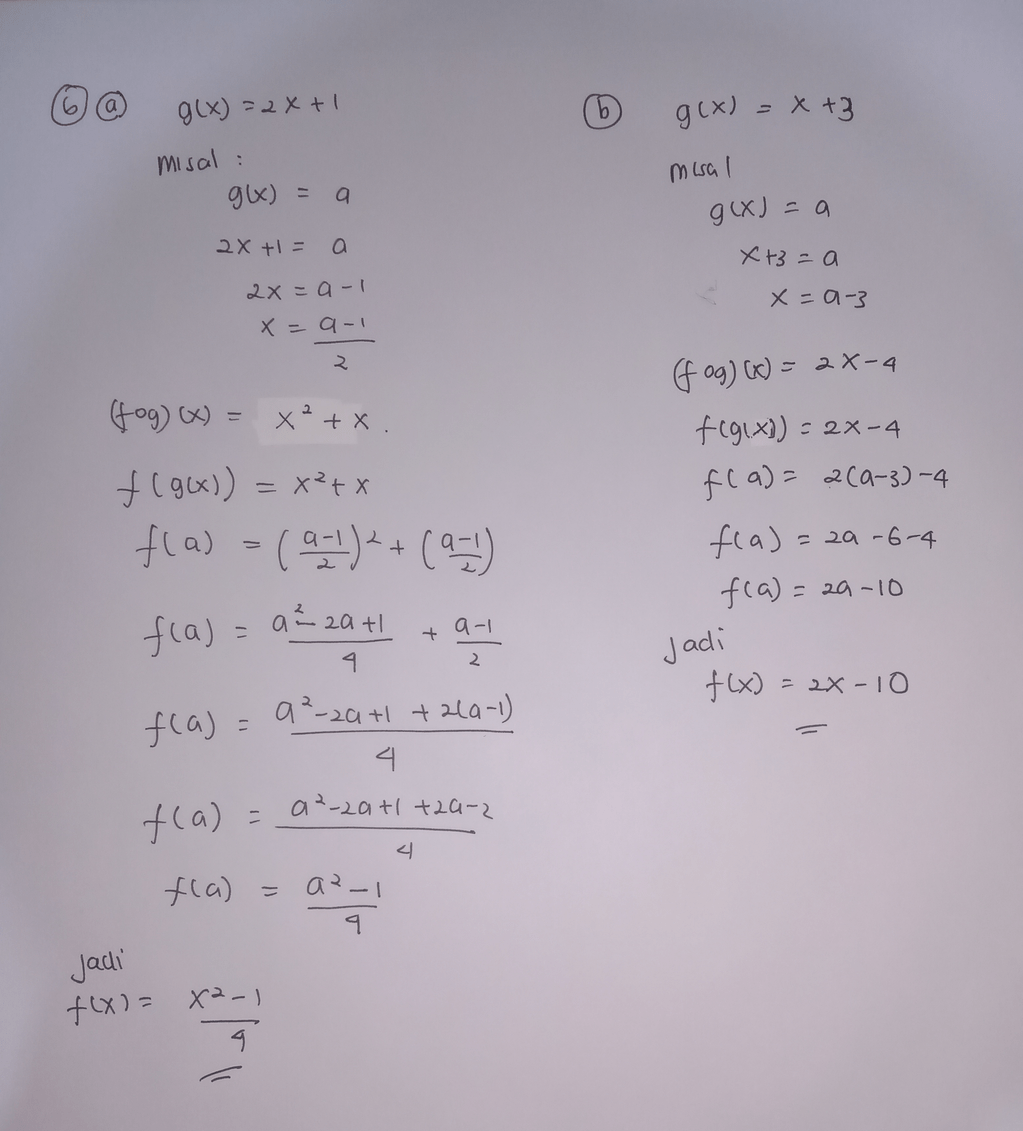 6 a g(x) = 2x + 1
misal :
g(x) = a
2x + 1 = a
2x = a - 1
x = (a - 1)/2
(fog)(x) = x² + x.
f(g(x)) = x² + x
f(a) = ((a-1)/2)² + ((a-1)/2)
f(a) = (a² - 2a + 1)/4 + (a-1)/2
f(a) = (a² - 2a + 1 + 2(a-1))/4
f(a) = (a² - 2a + 1 + 2a - 2)/4
f(a) = (a² - 1)/4
Jadi
f(x) = (x² - 1)/4
b g(x) = x + 3
misal
g(x) = a
x + 3 = a
x = a - 3
(fog)(x) = 2x - 4
f(g(x)) = 2x - 4
f(a) = 2(a-3) - 4
f(a) = 2a - 6 - 4
f(a) = 2a - 10
Jadi
f(x) = 2x - 10